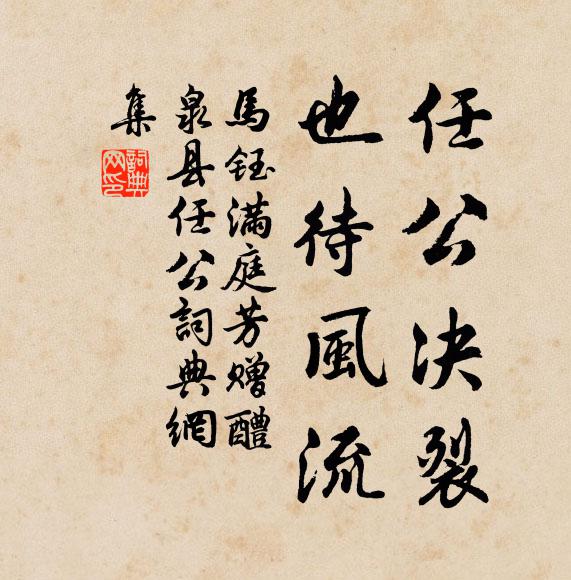 任公决裂
也待風流
馬鈺滿庭芳赠醴
泉县任公詞典網
集
詞典
网印